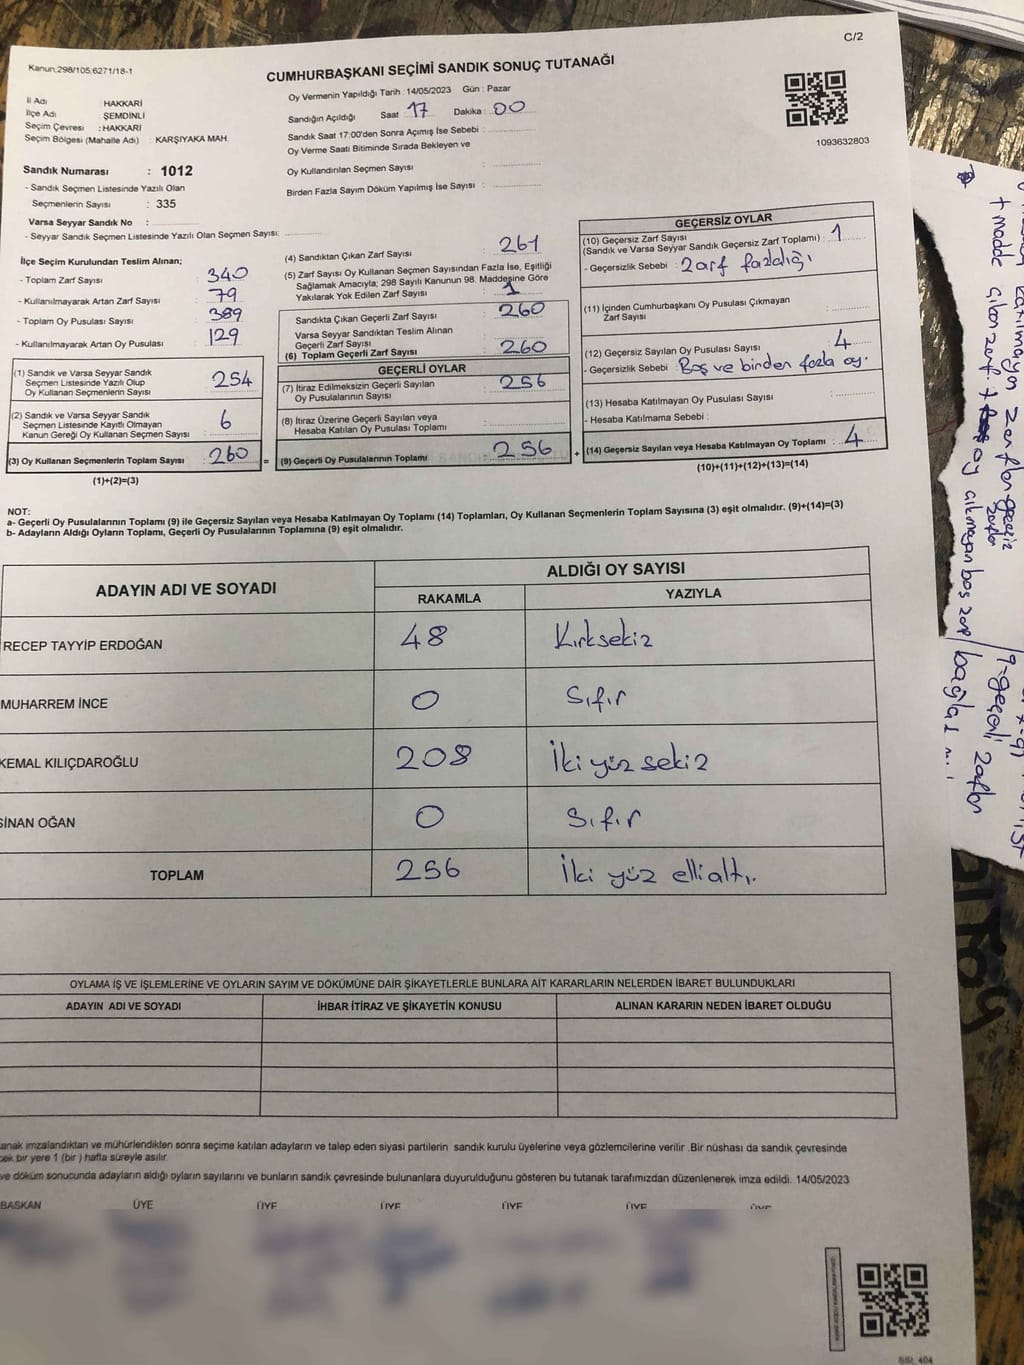 C/2
Kanun,298/105,6271/18-1
CUMHURBAŞKANI SEÇİMİ SANDIK SONUÇ TUTANAĞI
İl Adı HAKKARİ
İlçe Adı ŞEMDİNLİ
Seçim Çevresi : HAKKARİ
Seçim Bölgesi (Mahalle Adı) : KARŞIYAKA MAH.
Oy Vermenin Yapıldığı Tarih : 14/05/2023 Gün : Pazar
Sandığın Açıldığı Saat 17 Dakika : 00
Sandık Saat 17:00'den Sonra Açımış İse Sebebi :
Oy Verme Saati Bitiminde Sırada Bekleyen ve
Oy Kullandırılan Seçmen Sayısı :
Birden Fazla Sayım Döküm Yapılmış İse Sayısı :
1093632803
Sandık Numarası : 1012
- Sandık Seçmen Listesinde Yazılı Olan
Seçmenlerin Sayısı : 335
Varsa Seyyar Sandık No :
- Seyyar Sandık Seçmen Listesinde Yazılı Olan Seçmen Sayısı:
İlçe Seçim Kurulundan Teslim Alınan;
- Toplam Zarf Sayısı : 340
- Kullanılmayarak Artan Zarf Sayısı : 79
- Toplam Oy Pusulası Sayısı : 389
- Kullanılmayarak Artan Oy Pusulası : 129
(1) Sandık ve Varsa Seyyar Sandık
Seçmen Listesinde Yazılı Olup
Oy Kullanan Seçmenlerin Sayısı : 254
(2) Sandık ve Varsa Seyyar Sandık
Seçmen Listesinde Kayıtlı Olmayan
Kanun Gereği Oy Kullanan Seçmen Sayısı : 6
(3) Oy Kullanan Seçmenlerin Toplam Sayısı : 260
(1)+(2)=(3)
(4) Sandıktan Çıkan Zarf Sayısı : 261
(5) Zarf Sayısı Oy Kullanan Seçmen Sayısından Fazla İse, Eşitliği
Sağlamak Amacıyla; 298 Sayılı Kanunun 98. Maddesine Göre
Yakılarak Yok Edilen Zarf Sayısı : 1
Sandıkta Çıkan Geçerli Zarf Sayısı : 260
Varsa Seyyar Sandıktan Teslim Alınan
Geçerli Zarf Sayısı :
(6) Toplam Geçerli Zarf Sayısı : 260
GEÇERLİ OYLAR
(7) İtiraz Edilmeksizin Geçerli Sayılan
Oy Pusulalarının Sayısı : 256
(8) İtiraz Üzerine Geçerli Sayılan veya
Hesaba Katılan Oy Pusulası Toplamı :
= (9) Geçerli Oy Pusulalarının Toplamı : 256
GEÇERSİZ OYLAR
(10) Geçersiz Zarf Sayısı
(Sandık ve Varsa Seyyar Sandık Geçersiz Zarf Toplamı) : 1
- Geçersizlik Sebebi : Zarf fazlalığı
(11) İçinden Cumhurbaşkanı Oy Pusulası Çıkmayan
Zarf Sayısı :
(12) Geçersiz Sayılan Oy Pusulası Sayısı : 4
- Geçersizlik Sebebi : Boş ve birden fazla oy.
(13) Hesaba Katılmayan Oy Pusulası Sayısı :
- Hesaba Katılmama Sebebi :
+ (14) Geçersiz Sayılan veya Hesaba Katılmayan Oy Toplamı : 4
(10)+(11)+(12)+(13)=(14)
NOT:
a- Geçerli Oy Pusulalarının Toplamı (9) ile Geçersiz Sayılan veya Hesaba Katılmayan Oy Toplamı (14) Toplamları, Oy Kullanan Seçmenlerin Toplam Sayısına (3) eşit olmalıdır. (9)+(14)=(3)
b- Adayların Aldığı Oyların Toplamı, Geçerli Oy Pusulalarının Toplamına (9) eşit olmalıdır.
ADAYIN ADI VE SOYADI ALDIĞI OY SAYISI
RAKAMLA YAZIYLA
RECEP TAYYİP ERDOĞAN 48 Kırksekiz
MUHARREM İNCE 0 Sıfır
KEMAL KILIÇDAROĞLU 208 İki yüz sekiz
SİNAN OĞAN 0 Sıfır
TOPLAM 256 İki yüz elli altı.
OYLAMA İŞ VE İŞLEMLERİNE VE OYLARIN SAYIM VE DÖKÜMÜNE DAİR ŞİKAYETLERLE BUNLARA AİT KARARLARIN NELERDEN İBARET BULUNDUKLARI
ADAYIN ADI VE SOYADI İHBAR İTİRAZ VE ŞİKAYETİN KONUSU ALINAN KARARIN NEDEN İBARET OLDUĞU
anak imzalandıktan ve mühürlendikten sonra seçime katılan adayların ve talep eden siyasi partilerin sandık kurulu üyelerine veya gözlemcilerine verilir. Bir nüshası da sandık çevresinde
cek bir yere 1 (bir ) hafta süreyle asılır.
ve döküm sonucunda adayların aldığı oyların sayılarını ve bunların sandık çevresinde bulunanlara duyurulduğunu gösteren bu tutanak tarafımızdan düzenlenerek imza edildi. 14/05/2023
BAŞKAN ÜYE ÜYE ÜYE ÜYE ÜYE ÜYE
+ madde
çıkan zarf.
oy çıkmayan boş zarf
katılmayan zarflar geçersiz
zarflar
9=geçerli zarflar